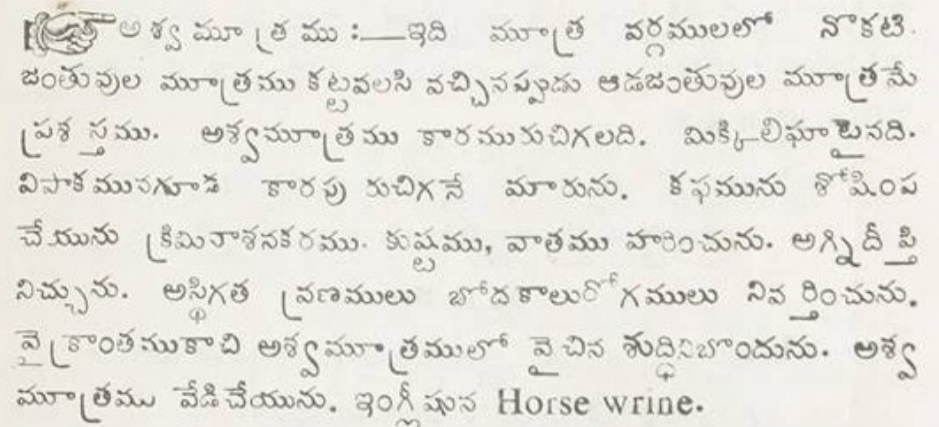 అశ్వమూత్రము :—ఇది మూత్ర వర్గములలో నొకటి.
జంతువుల మూత్రము కట్టవలసి వచ్చినప్పుడు ఆడజంతువుల మూత్రమే
ప్రశస్తము. అశ్వమూత్రము కారమురుచిగలది. మిక్కిలిఘాటైనది.
విపాకమునగూడ కారపు రుచిగనే మారును. కఫమును శోషింప
చేయును క్రిమినాశనకరము. కుష్టము, వాతము హరించును. అగ్నిదీప్తి
నిచ్చును. అస్థిగత వ్రణములు బోదకాలురోగములు నివర్తించును.
వైక్రాంతముకాచి అశ్వమూత్రములో వైచిన శుద్ధినిబొందును. అశ్వ
మూత్రము వేడిచేయును. ఇంగ్లీషున Horse wrine.